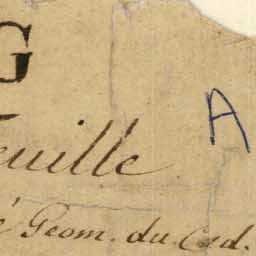 G
A
euille
é Geom. du Cad.